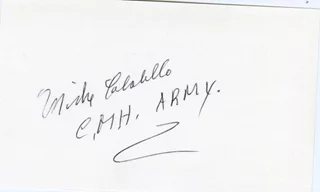 Mike Colalillo
C.M.H. ARMY.